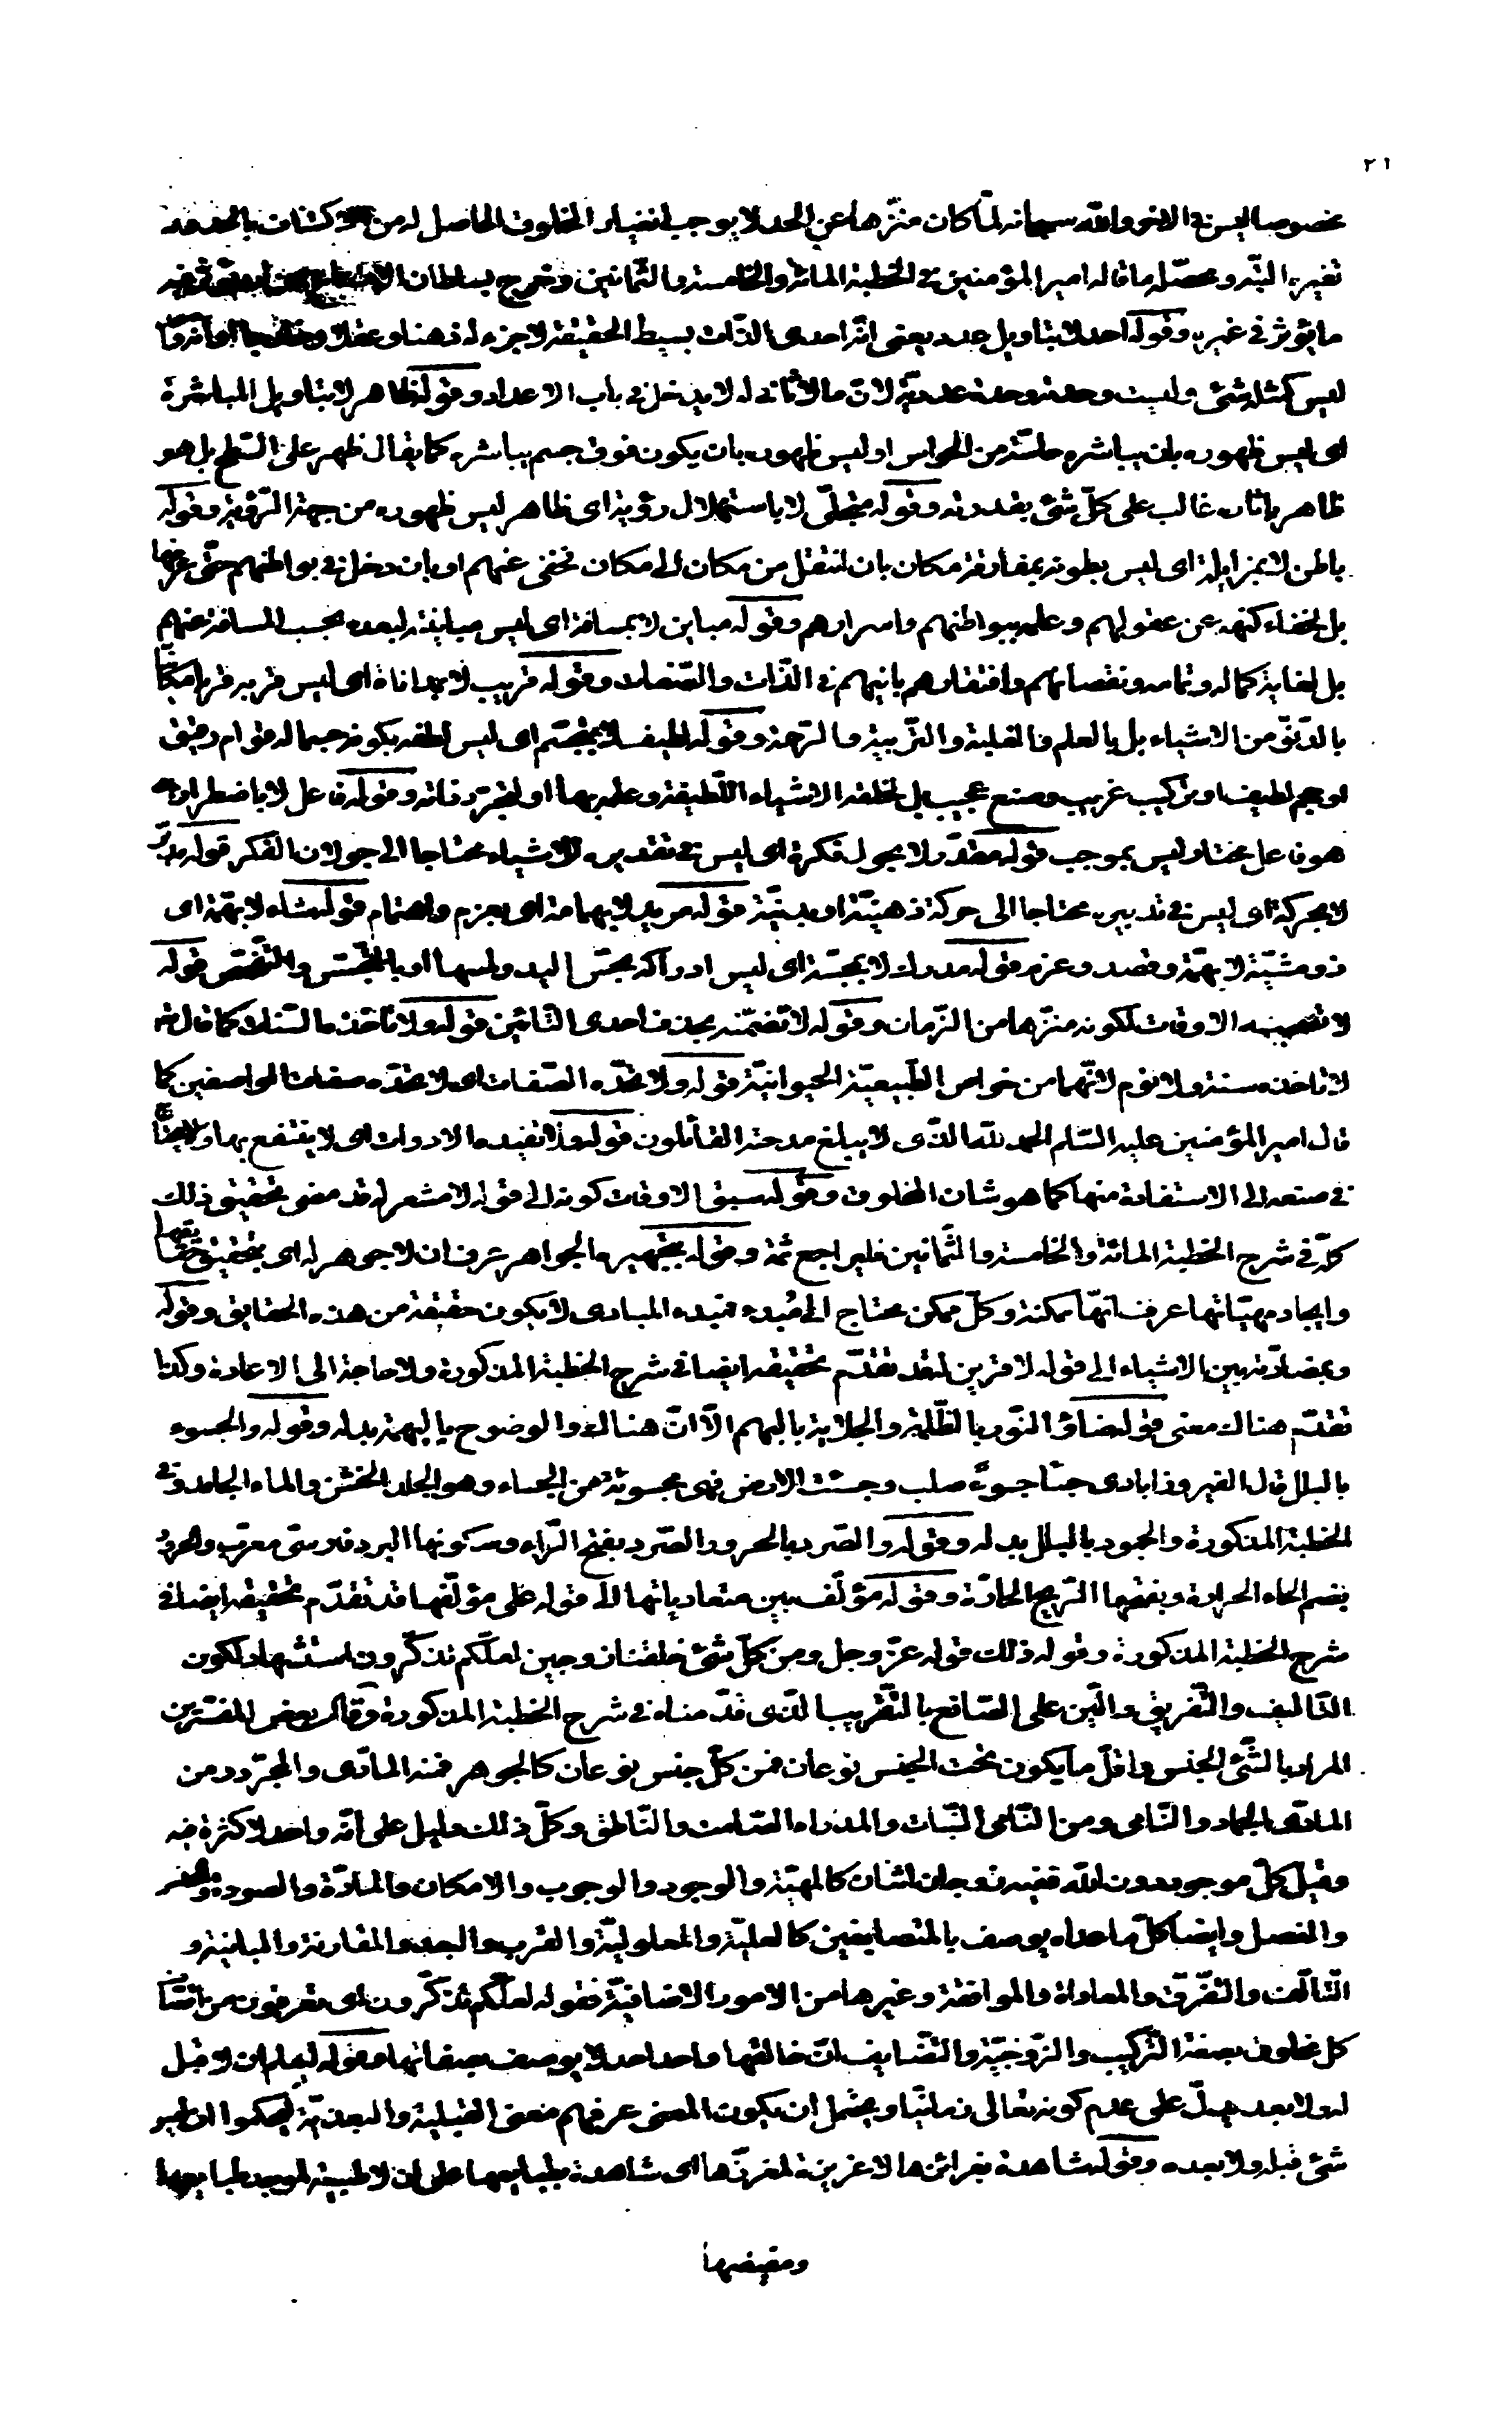 ٢١
مخصوصا ليس في الاخر والله سبحانه لمّا كان منزّها عن الحد لا يوجب انغيار المخلوق الحاصل له من بالحدود
تغيره البتّه ومحصّله ما قاله امير المؤمنين في الخطبة المائة والخامسة والثمانين وخرج بسلطان الامتناع من ان يؤثر فيه
ما يؤثر في غيره وقوله احد لا بتاويل عدد يعنى انّه احدى الذّات بسيط الحقيقة لا جزء له ذهنا وعقلا وخارجا
ليس كمثله شئ وليست وحدته وحدة عدديّة لانّ ما لا ثانى له لا يدخل في باب الاعداد وقوله ظاهر لا بتاويل المباشرة
اى ليس ظهوره بان يباشره حاسّة من الحواس او ليس ظهوره بان يكون فوق جسم يباشره كما يقال ظهر على السّطح بل هو
ظاهر باثاره غالب على كلّ شئ بقدرته وقوله متجلّى لا باستهلال رؤية اى ظاهر ليس ظهوره من جهة الرّؤية وقوله
باطن لا بمزايلة اى ليس بطونه بمفارقة مكان بان انتقل من مكان الى مكان فخفى عنهم او بان دخل في بواطنهم حتّى عرفها
بل لخفاء كنهه عن عقولهم وعلمه ببواطنهم واسرارهم وقوله مباين لا بمسافة اى ليس مباينته لبعده بحسب المسافة عنهم
بل لغاية كماله وتمامه ونقصانهم وافتقارهم باينهم في الذّات والصّفات وقوله قريب لا بمداناة اى ليس قربه قربا مكانيّا
بالدّنوّ من الاشياء بل بالعلم والعلية والتّربية والرّحمة وقوله لطيف لا بتجسّم اى ليس لطفه بكونه جسما له قوام رقيق
او حجم لطيف او تركيب غريب وصنع عجيب بل لخلقه الاشياء اللّطيفة وعلمه بها او لتجرّد ذاته وقوله فاعل لا باضطرار
هو فاعل مختار ليس بموجب قوله مقدّر لا بجول فكرة اى ليس في تقديره للاشياء محتاجا الى جولان الفكر قوله مدبّر
لا بحركة اى ليس في تدبيره محتاجا الى حركة ذهنيّة او بدنيّة قوله مريد لا بهمامة اى بعزم واهتمام قوله شاء لا بهمّة اى
ذو مشيّة لا بهمّة وقصد وعزم قوله مدرك لا بمجسّة اى ليس ادراكه بمجسّ اليد ولمسها او بالتّجسّس والتّفحّص قوله
لا تصحبه الاوقات لكونه منزّها من الزّمان وقوله لا تضمّنه بحذف احدى التّائين قوله ولا تاخذه السّنات كما قال
لا تاخذه سنة ولا نوم لانّهما من خواص الطّبيعيّة الحيوانيّة قوله ولا تحدّه الصّفات اى لا تحدّه صفات الواصفين كما
قال امير المؤمنين عليه السّلام الحمد لله الذّى لا يبلغ مدحته القائلون قوله ولا تفيده الادوات اى لا ينتفع بها ولا يحتاج
في صنعه الى الاستفادة منها كما هو شان المخلوق وقوله سبق الاوقات كونه الى قوله لا مشعر له قد مضى تحقيق ذلك
كلّه في شرح الخطبة المائة والخامسة والثّمانين فليراجع ثمّة وقوله بتجهيره الجواهر عرف ان لا جوهر له اى بتحقيق حقايقها
وايجاد مهيّاتها عرف انّها ممكنة وكلّ ممكن محتاج الى مُبدء فمبدء المبادى لا يكون حقيقة من هذه الحقايق وقوله
وبمضادّته بين الاشياء الى قوله لا قرين له قد تقدّم تحقيقه ايضا في شرح الخطبة المذكورة ولا حاجة الى الاعادة وكذا
تقدّم هناك معنى قوله ضادّ النّور بالظّلمة والجلاية بالبهم الّا انّ هناك والوضوح بالبهمة بدله وقوله والجسوء
بالبلل قال الفيروزابادى جسأ جسوءً صلب وجسئت الارض فهى مجسوئة من الجساء وهو الجلد الخشن والماء الجامد وفي
الخطبة المذكورة والجمود بالبلل بدله وقوله والصّرد بالحرور الصّرد بفتح الرّاء وسكونها البرد فارسىّ معرّب والحرور
بضم الحاء الحرارة وبفتحها الرّيح الحارّة وقوله مؤلّف بين متعادياتها الى قوله على مؤلّفها قد تقدّم تحقيقه ايضا في
شرح الخطبة المذكورة وقوله ذلك قوله عزّ وجل ومن كلّ شئ خلقنا زوجين لعلّكم تذكّرون استشهاد لكون
التّاليف والتّفريق دالّين على الصّانع بالتّقريب الّذى قدّمناه في شرح الخطبة المذكورة وقال بعض المفسّرين
المراد بالشّئ الجنس واقلّ ما يكون تحت الجنس نوعان فمن كلّ جنس نوعان كالجوهر فمنه المادّى والمجرّد ومن
المادّى الجماد والنّامى ومن النّامى النّبات والمدرك الصّامت والنّاطق وكلّ ذلك دليل على انّه واحد لا كثرة فيه
وقيل كلّ موجود دون الله ففيه زوجان اثنان كالمهيّة والوجود والوجوب والامكان والمادّة والصورة والجنس
والفصل وايضا كلّ ما عداه يوصف بالمتضايفين كالعليّة والمعلوليّة والقرب والبعد والمقارنة والمباينة و
التّالّف والتّفرّق والمعاداة والموافقة وغيرها من الامور الاضافيّة فقوله لعلّكم تذكّرون اى تعرفون من اتّصاف
كل مخلوق بصفة التّركيب والزّوجيّة والتّضايف انّ خالقها واحد احد لا يوصف بصفاتها وقوله ليعلم ان لا قبل
له ولا بعد يدلّ على عدم كونه تعالى زمانيّا ويحتمل ان يكون المعنى عرفهم معنى القبلية والبعديّة ليحكموا ان ليس
شئ قبله ولا بعده وقوله شاهدة بغرائزها لا غريزة لمغرزها اى شاهدة بطبايعها على ان لا طبيعة لموجد طبايعها
ومفيضها